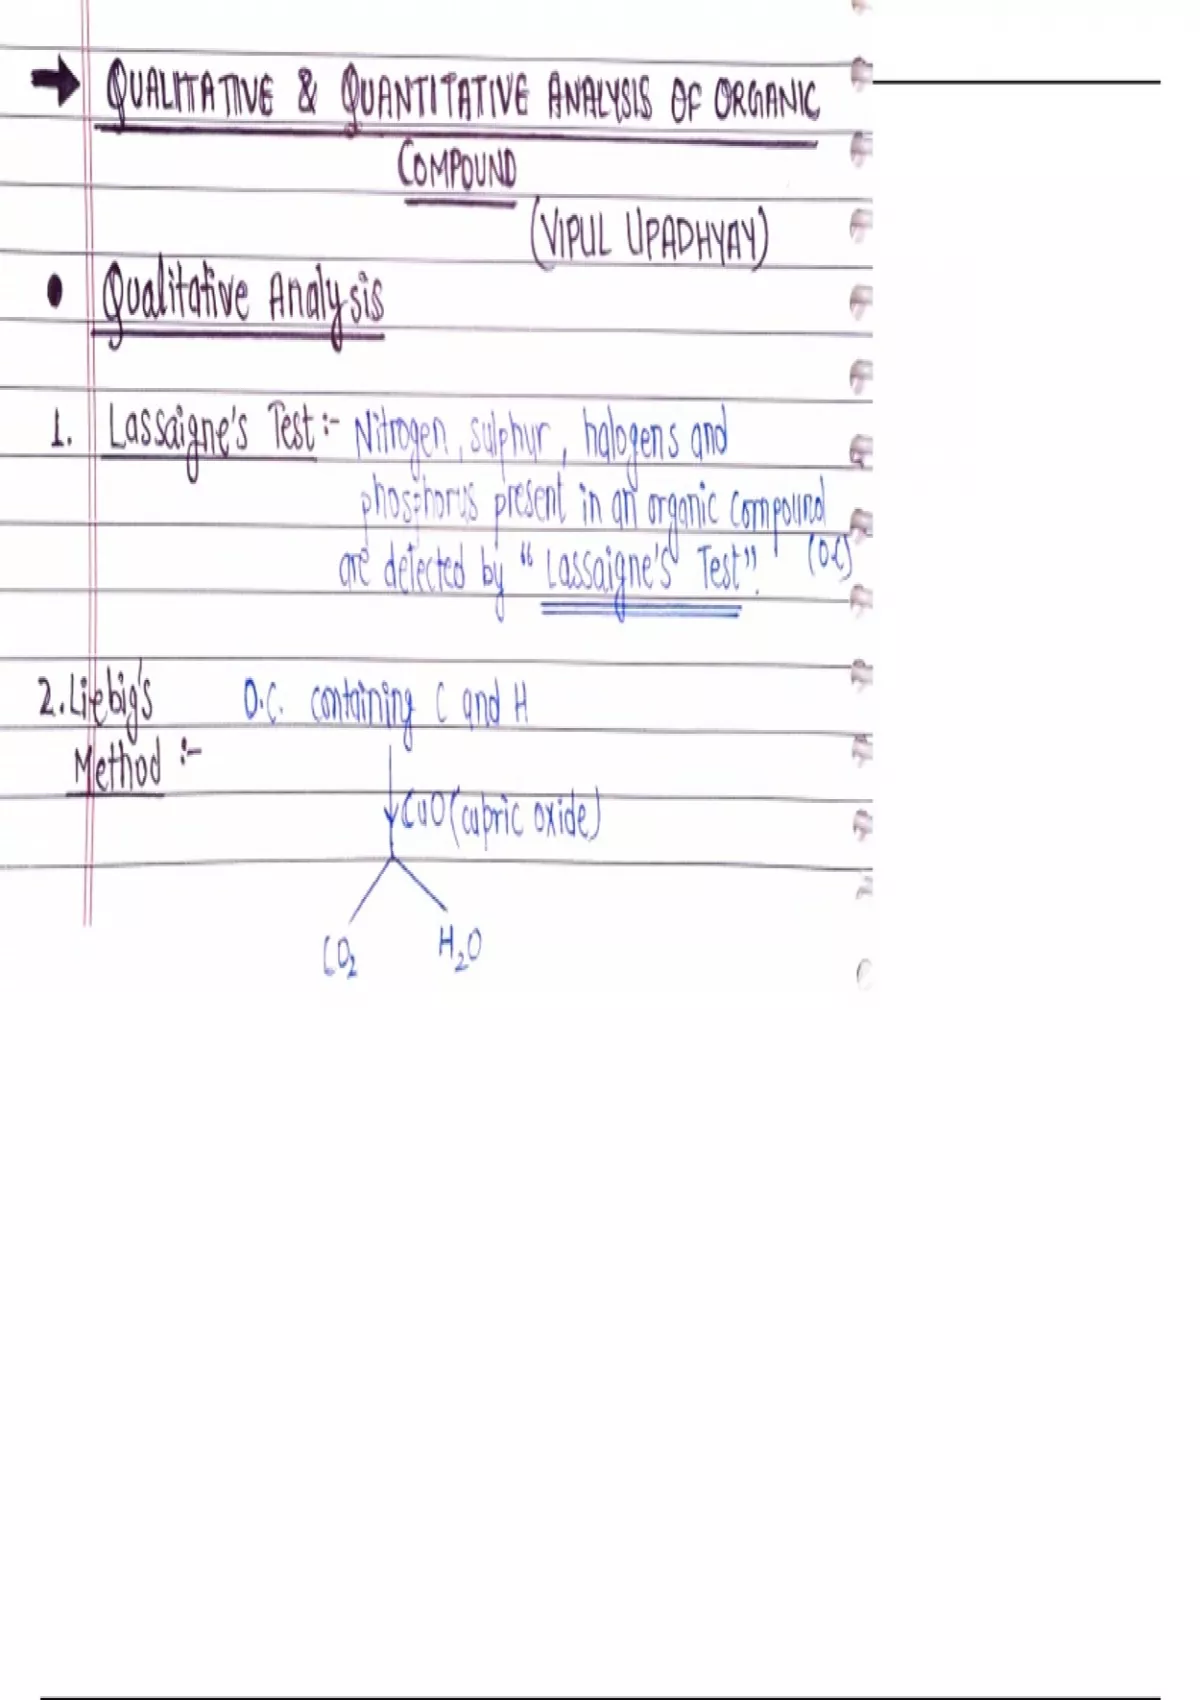 → QUALITATIVE & QUANTITATIVE ANALYSIS OF ORGANIC
COMPOUND
(VIPUL UPADHYAY)
• Qualitative Analysis
1. Lassaigne's Test :- Nitrogen, sulphur, halogens and
phosphorus present in an organic compound
(O.C)
are detected by "Lassaigne's Test".
2. Liebig's O.C. containing C and H
Method :-
CuO (cupric oxide)
CO₂ H₂O